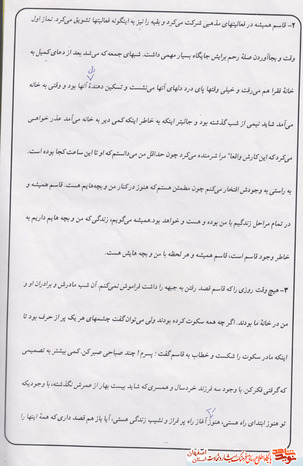 ۲- قاسم همیشه در فعالیتهای مذهبی شرکت می‌کرد و بقیه را نیز به اینگونه فعالیتها تشویق می‌کرد. نماز اول
وقت و بجاآوردن صلهٔ رحم برایش جایگاه بسیار مهمی داشت. شبهای جمعه که می‌شد بعد از دعای کمیل به
خانهٔ فقرا هم می‌رفت و خیلی وقتها پای درد دلهای آنها می‌نشست و تسکین دهندهٔ آنها بود و وقتی به خانه
می‌آمد شاید نیمی از شب گذشته بود و جالبتر اینکه به خاطر اینکه کمی دیر به خانه می‌آمد عذر خواهی
می‌کرد که این کارش واقعا" مرا شرمنده می‌کرد چون حداقل من می‌دانستم که او تا این ساعت کجا بوده است.
به راستی به وجودش افتخار می‌کنم چون مطمئن هستم که هنوز در کنار من و بچه‌هایم هست. قاسم همیشه و
در تمام مراحل زندگیم با من بوده و هست و خواهد بود. همیشه می‌گویم، زندگی که من و بچه هایم داریم به
خاطر وجود قاسم است، قاسم همیشه و هر لحظه با من و بچه هایش هست.
۳- هیچ وقت روزی را که قاسم قصد رفتن به جبهه را داشت فراموش نمی‌کنم. آن شب مادرش و برادران او و
من در خانهٔ ما بودند. اگر چه همه سکوت کرده بودند ولی می‌توان گفت چشمهای هر یک پر از حرف بود تا
اینکه مادر سکوت را شکست و خطاب به قاسم گفت: پسرم! چند صباحی صبر کن. کمی بیشتر به تصمیمی
که گرفتی فکر کن. با وجود سه فرزند خردسال و همسری که شاید بیست بهار از عمرش نگذشته، با وجودیکه
تو هنوز ابتدای راه هستی، هنوز آغاز راه پر فراز و نشیب زندگی هستی، آیا باز هم قصد داری که همهٔ اینها را